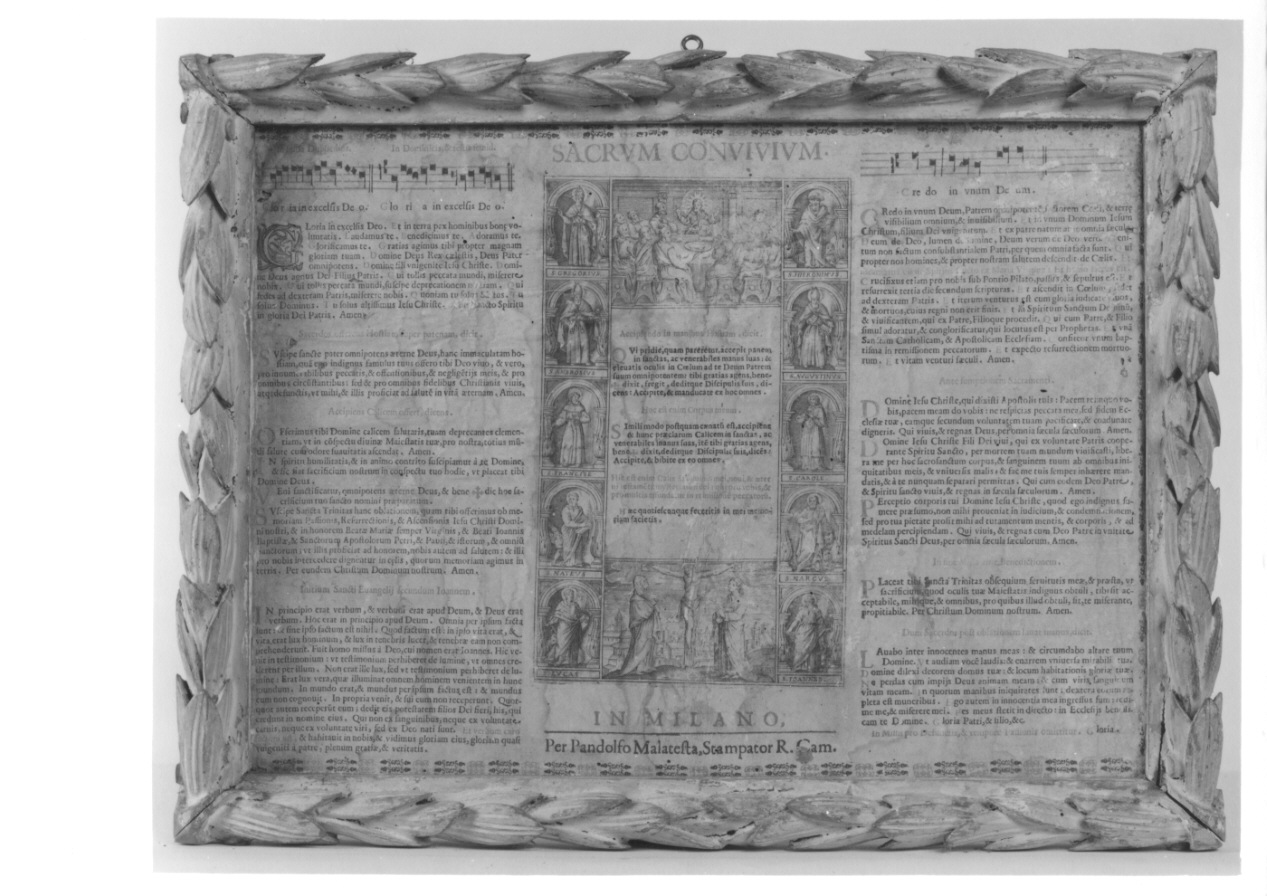 In Duplicibus,
SACRVM CONVIVIVM.
Glo ria in excelsis De o. Glo ri a in excelsis De o.
GLoria in excelsis Deo. Et in terra pax hominibus bonę vo-
luntatis. Laudamus te. Benedicimus te. Adoramus te.
Glorificamus te. Gratias agimus tibi propter magnam
gloriam tuam. Domine Deus Rex cælestis, Deus Pater
omnipotens. Domine fili vnigenite Iesu Christe. Domi-
ne Deus agnus Dei Filius Patris. Qui tollis peccata mundi, miserere
nobis. Qui tollis peccata mundi, suscipe deprecationem nostram. Qui
sedes ad dexteram Patris, miserere nobis. Quoniam tu solus Sanctus. Tu
solus Dominus. Tu solus altissimus Iesu Christe. Cum Sancto Spiritu
in gloria Dei Patris. Amen.
SVscipe sancte pater omnipotens æterne Deus, hanc immaculatam ho-
stiam, quā ego indignus famulus tuus offero tibi Deo viuo, & vero,
pro innumerabilibus peccatis, & offensionibus, & negligētijs meis, & pro
omnibus circumstantibus: sed & pro omnibus fidelibus Christianis viuis,
atq; defunctis, vt mihi, & illis proficiat ad salutē in vitā æternam. Amen.
Accipiens Calicem offert, dicens.
OFferimus tibi Domine calicem salutaris, tuam deprecantes clemen-
tiam, vt in cōspectu diuinæ Maiestatis tuæ, pro nostra, totius mū-
di salute cum odore suauitatis ascendat. Amen.
IN spiritu humilitatis, & in animo contrito suscipiamur à te Domine,
& sic fiat sacrificium nostrum in conspectu tuo hodie, vt placeat tibi
Domine Deus.
VEni sanctificator, omnipotens æterne Deus, & bene ✠ dic hoc sa-
crificium tuo sancto nomini præparatum.
SVscipe Sancta Trinitas hanc oblationem, quam tibi offerimus ob me-
moriam Passionis, Resurrectionis, & Ascensionis Iesu Christi Domi-
ni nostri, & in honorem Beatæ Mariæ semper Virginis, & Beati Ioannis
Baptistæ, & Sanctorum Apostolorum Petri, & Pauli, & istorum, & omniū
Sanctorum: vt illis proficiat ad honorem, nobis autem ad salutem: & illi
pro nobis intercedere dignentur in cælis, quorum memoriam agimus in
terris. Per eundem Christum Dominum nostrum. Amen.
Initium Sancti Euangelij secundum Ioannem.
IN principio erat verbum, & verbum erat apud Deum, & Deus erat
verbum. Hoc erat in principio apud Deum. Omnia per ipsum facta
sunt: & sine ipso factum est nihil. Quod factum est: in ipso vita erat, &
vita erat lux hominum, & lux in tenebris lucet, & tenebræ eam non com-
prehenderunt. Fuit homo missus à Deo, cui nomen erat Ioannes. Hic ve-
nit in testimonium: vt testimonium perhiberet de lumine, vt omnes cre-
derent per illum. Non erat ille lux, sed vt testimonium perhiberet de lu-
mine: Erat lux vera, quæ illuminat omnem hominem venientem in hunc
mundum. In mundo erat, & mundus per ipsum factus est: & mundus
eum non cognouit. In propria venit, & sui eum non receperunt. Quot-
quot autem receperūt eum: dedit eis potestatem filios Dei fieri, his, qui
credunt in nomine eius. Qui non ex sanguinibus, neque ex voluntate
carnis, neque ex voluntate viri, sed ex Deo nati sunt.
& habitauit in nobis, & vidimus gloriam eius, gloriā quasi
vnigeniti à patre, plenum gratiæ, & veritatis.
S. GREGORIVS
S. HIERONIMVS
S. AVGVSTINVS
S. FRANCISC
S. MATEVS
S. MARCVS
S. LVCAS
QVi pridie, quam pateretur, accepit panem
in sanctas, ac venerabiles manus suas: &
eleuatis oculis in Cœlum ad te Deum Patrem
suum omnipotentem: tibi gratias agens, bene-
dixit, fregit, deditque Discipulis suis, di-
cens: Accipite, & manducate ex hoc omnes.
Hoc est enim Corpus meum.
SImili modo postquam cœnatū est, accipiens
& hunc præclarum Calicem in sanctas, ac
venerabiles manus suas, itē tibi gratias agens,
bene dixit, deditque Discipulis suis, dicēs:
Accipite, & bibite ex eo omnes.
Hæc quotiescunque feceritis in mei memo-
riam facietis.
IN MILANO,
Per Pandolfo Malatesta, Stampator R. Cam.
Cre do in vnam De um.
CRedo in vnum Deum, Patrem omnipotentē, factorem Cœli, & terræ
visibilium omnium, & inuisibilium. Et in vnum Dominum Iesum
Christum, filium Dei vnigenitum. Et ex patre natum ante omnia sæcula.
Deum de Deo, lumen de lumine, Deum verum de Deo vero. Geni-
tum non factum consubstantialem Patri, per quem omnia facta sunt. Qui
propter nos homines, & propter nostram salutem descendit de Cœlis.
Crucifixus etiam pro nobis sub Pontio Pilato, passus, & sepultus est. Et
resurrexit tertia die secundum Scripturas. Et ascendit in Cœlum, sedet
ad dexteram Patris. Et iterum venturus est cum gloria iudicare viuos,
& mortuos, cuius regni non erit finis. Et in Spiritum Sanctum Dominū,
& viuificantem, qui ex Patre, Filioque procedit. Qui cum Patre, & Filio
simul adoratur, & conglorificatur, qui locutus est per Prophetas. Et vnā
Sanctam Catholicam, & Apostolicam Ecclesiam. Confiteor vnum bap-
tisma in remissionem peccatorum. Et expecto resurrectionem mortuo-
rum. Et vitam venturi sæculi. Amen.
DOmine Iesu Christe, qui dixisti Apostolis tuis: Pacem relinquo vo-
bis, pacem meam do vobis: ne respicias peccata mea, sed fidem Ec-
clesiæ tuæ, eamque secundum voluntatem tuam pacificare, & coadunare
digneris. Qui viuis, & regnas Deus, per omnia sæcula sæculorum. Amen.
DOmine Iesu Christe Fili Dei viui, qui ex voluntate Patris coope-
rante Spiritu Sancto, per mortem tuam mundum viuificasti, libe-
ra me per hoc sacrosanctum corpus, & sanguinem tuum ab omnibus ini-
quitatibus meis, & vniuersis malis: & fac me tuis semper inhærere man-
datis, & à te nunquam separari permittas. Qui cum eodem Deo Patre,
& Spiritu sancto viuis, & regnas in sæcula sæculorum. Amen.
PErceptio corporis tui Domine Iesu Christe, quod ego indignus su-
mere præsumo, non mihi proueniat in iudicium, & condemnationem,
sed pro tua pietate prosit mihi ad tutamentum mentis, & corporis, & ad
medelam percipiendam. Qui viuis, & regnas cum Deo Patre in vnitate
Spiritus Sancti Deus, per omnia sæcula sæculorum. Amen.
PLaceat tibi Sancta Trinitas obsequium seruitutis meæ, & præsta, vt
sacrificium, quod oculis tuæ Maiestatis indignus obtuli, tibi sit ac-
ceptabile, mihique, & omnibus, pro quibus illud obtuli, sit, te miserante,
propitiabile. Per Christum Dominum nostrum. Amen.
LAuabo inter innocentes manus meas: & circumdabo altare tuum
Domine. Vt audiam vocē laudis: & enarrem vniuersa mirabilia tua.
Domine dilexi decorem domus tuæ: & locum habitationis gloriæ tuæ.
Ne perdas cum impijs Deus animam meam: & cum viris sanguinum
vitam meam. In quorum manibus iniquitates sunt: dextera eorum re-
pleta est muneribus. Ego autem in innocentia mea ingressus sum: redi-
me me, & miserere mei. Pes meus stetit in directo: in Ecclesijs bene di-
cam te Domine. Gloria Patri, & filio, &c.